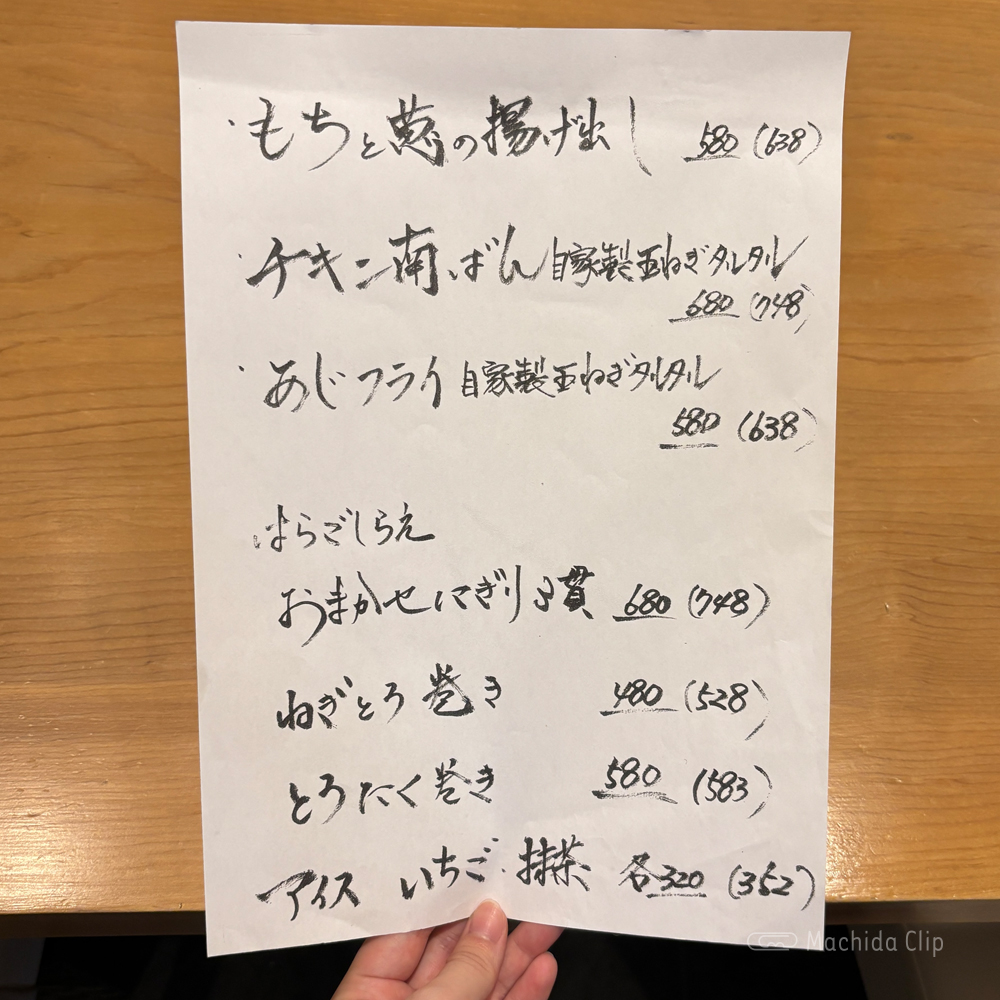 ・もちと葱の揚げ出し 580 (638)
・チキン南ばん 自家製玉ねぎタルタル
680 (748)
・あじフライ 自家製玉ねぎタルタル
580 (638)
はらごしらえ
おまかせにぎり3貫 680 (748)
ねぎとろ巻き 480 (528)
とろたく巻き 580 (583)
アイス いちご・抹茶 各320 (352)
Machida Clip